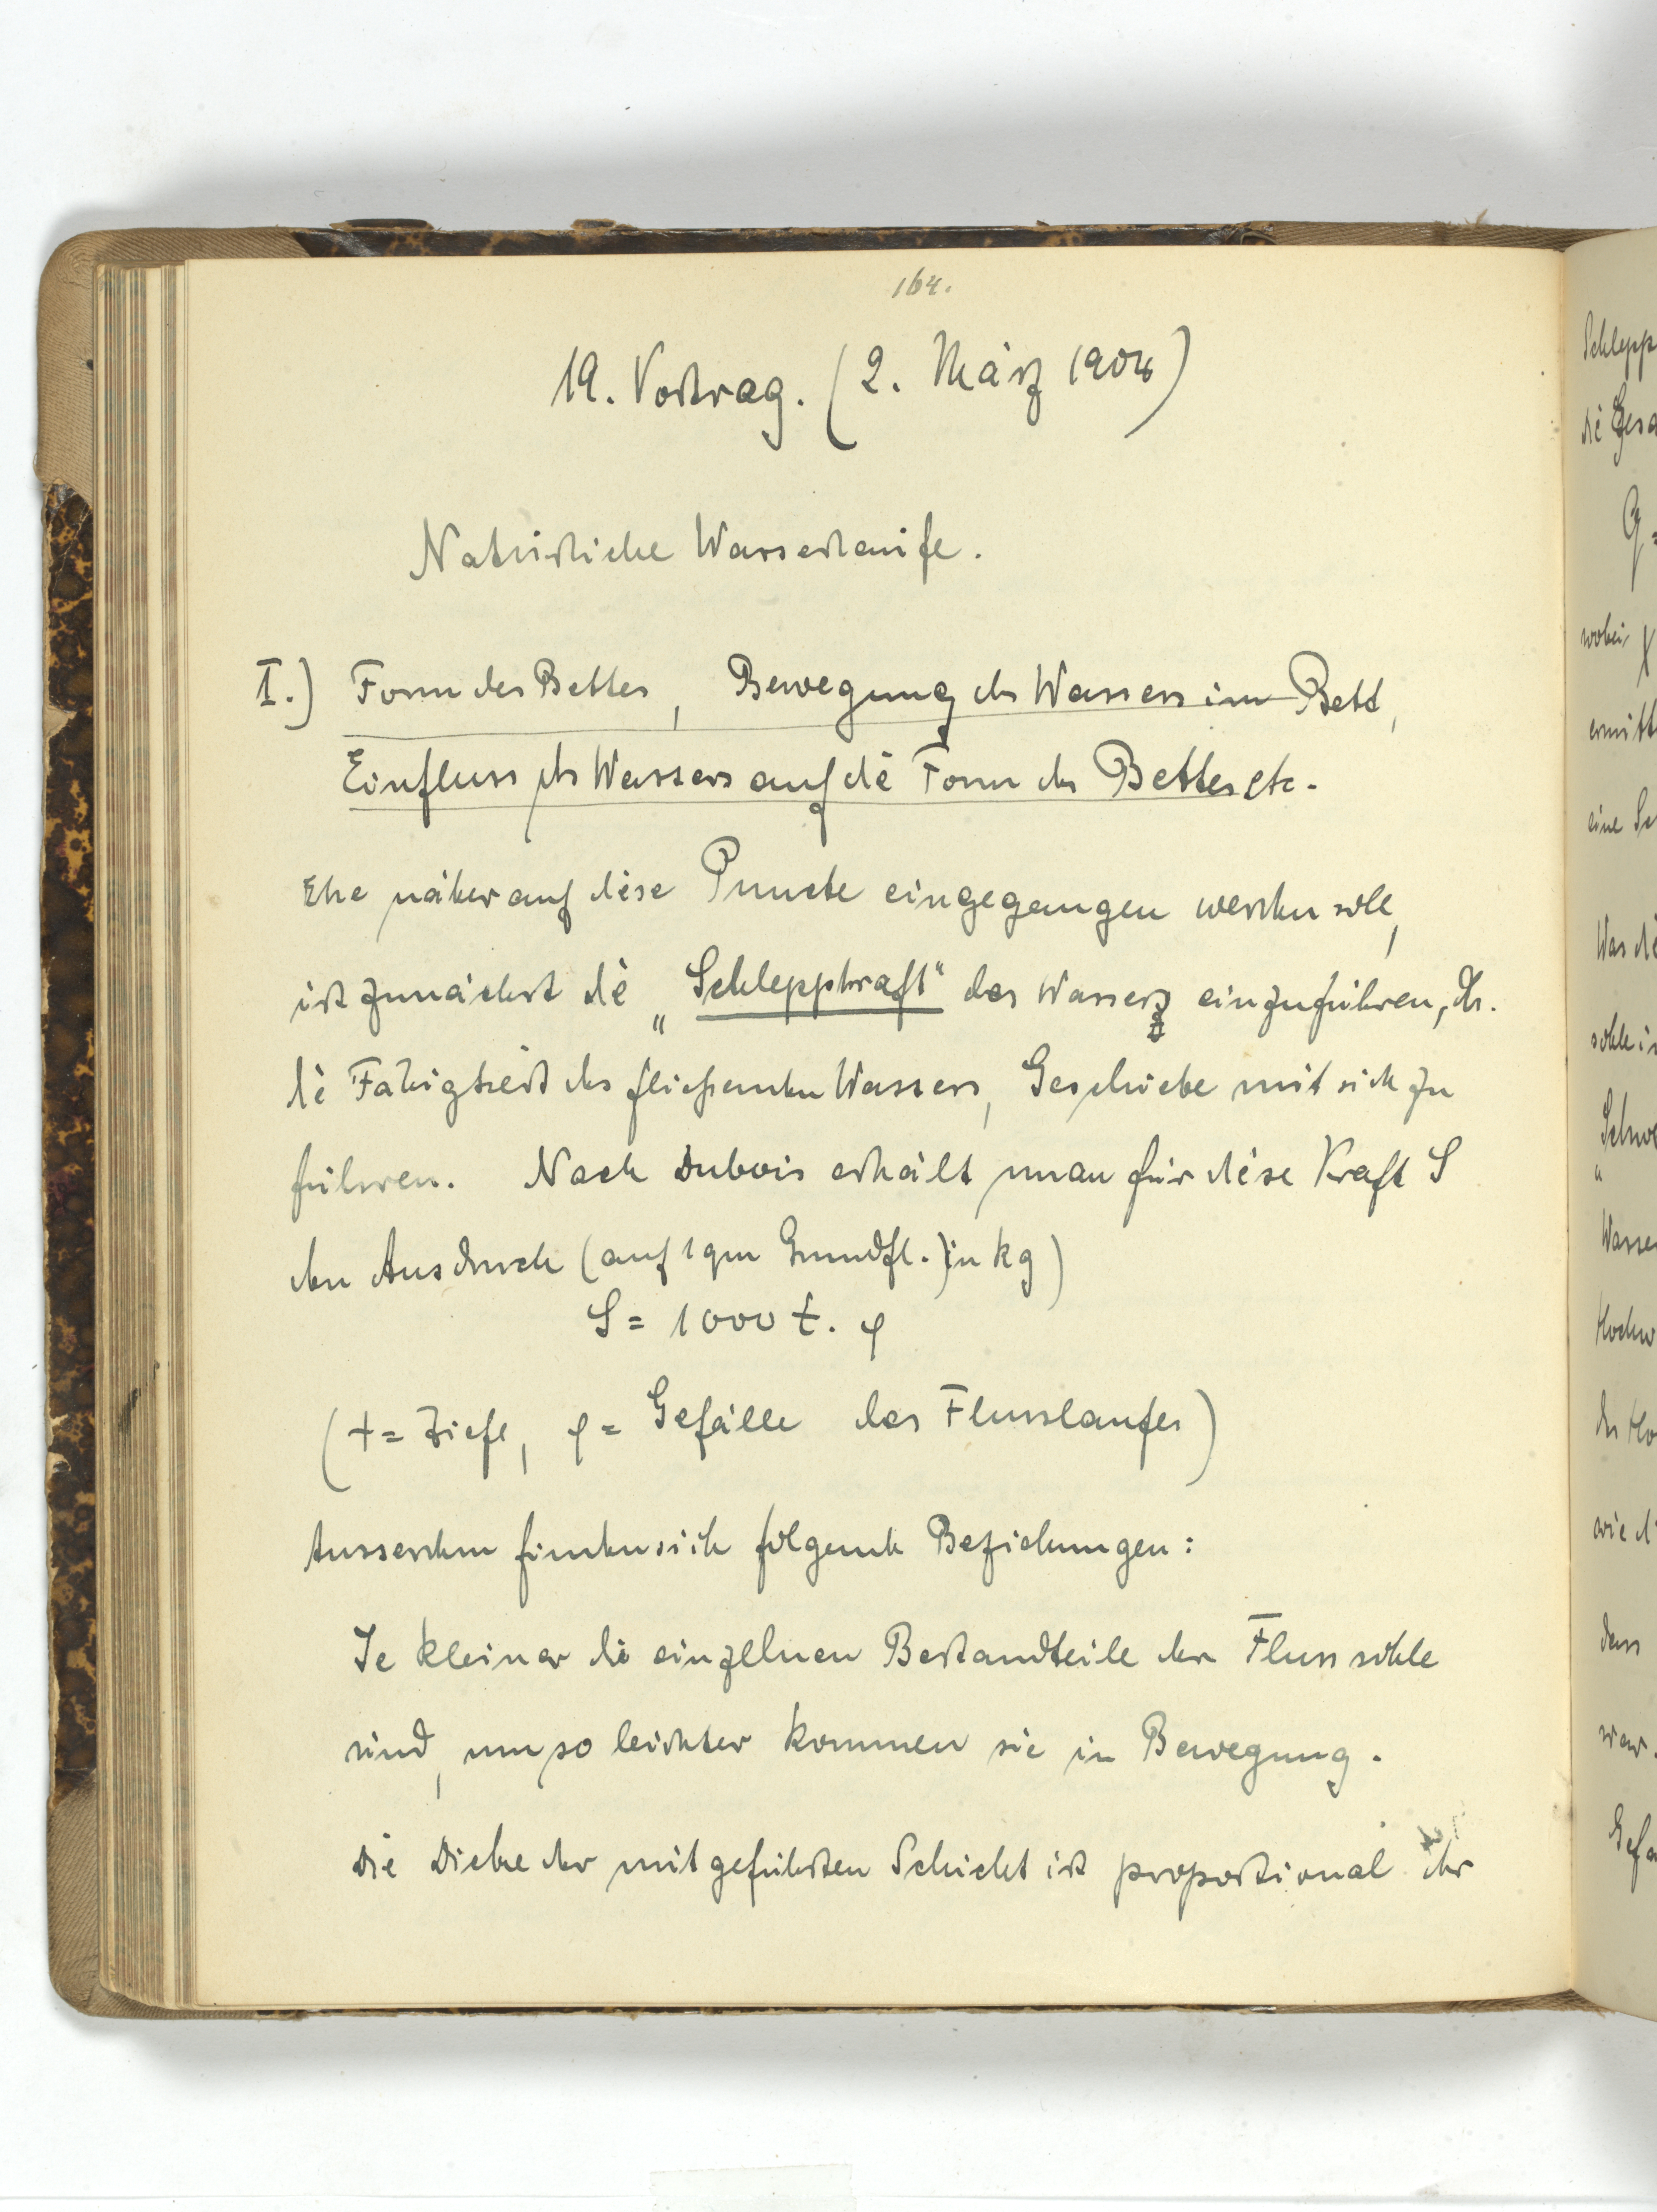 164.
19. Vortrag. (2. März 1904)
Natürliche Wasserläufe.
I.) Form des Bettes, Bewegung des Wassers im Bett,
Einfluss des Wassers auf die Form des Bettes etc.
Ehe näher auf diese Puncte eingegangen werden soll,
ist zunächst die „Schleppkraft“ des Wassers einzuführen, dh.
die Fähigkeit des fließenden Wassers, Geschiebe mit sich zu
führen. Nach Dubois erhält man für diese Kraft S
den Ausdruck (auf 1 qm Grundfl.) in kg)
S = 1000 t. φ
(t = Tiefe, φ = Gefälle des Flusslaufes)
Ausserdem finden sich folgende Beziehungen:
Je kleiner die einzelnen Bestandteile der Flussohle
sind, um so leichter kommen sie in Bewegung.
Die Dicke der mitgeführten Schicht ist proportional der
Schlepp
die Gesa
G =
wobei χ
ermitt
eine Se
Was die
sohle is
„Schwe
Wasse
Hochw
des Ho
wie d
dass
war.
Gefa